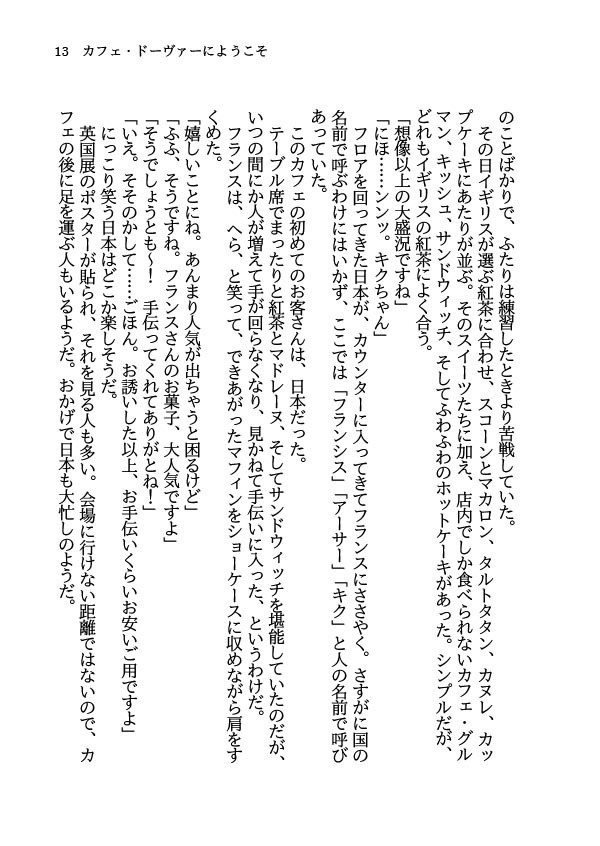 13　カフェ・ドーヴァーにようこそ
のことばかりで、ふたりは練習したときより苦戦していた。
　その日イギリスが選ぶ紅茶に合わせ、スコーンとマカロン、タルトタタン、カヌレ、カッ
プケーキにあたりが並ぶ。そのスイーツたちに加え、店内でしか食べられないカフェ・グル
マン、キッシュ、サンドウィッチ、そしてふわふわのホットケーキがあった。シンプルだが、
どれもイギリスの紅茶によく合う。
「想像以上の大盛況ですね」
「にほ……ンンッ。キクちゃん」
　フロアを回ってきた日本が、カウンターに入ってきてフランスにささやく。さすがに国の
名前で呼ぶわけにはいかず、ここでは「フランシス」「アーサー」「キク」と人の名前で呼び
あっていた。
　このカフェの初めてのお客さんは、日本だった。
　テーブル席でまったりと紅茶とマドレーヌ、そしてサンドウィッチを堪能していたのだが、
いつの間にか人が増えて手が回らなくなり、見かねて手伝いに入った、というわけだ。
　フランスは、へら、と笑って、できあがったマフィンをショーケースに収めながら肩をす
くめた。
「嬉しいことにね。あんまり人気が出ちゃうと困るけど」
「ふふ、そうですね。フランスさんのお菓子、大人気ですよ」
「そうでしょうとも〜！　手伝ってくれてありがとね！」
「いえ。そそのかして……ごほん。お誘いした以上、お手伝いくらいお安いご用ですよ」
　にっこり笑う日本はどこか楽しそうだ。
　英国展のポスターが貼られ、それを見る人も多い。会場に行けない距離ではないので、カ
フェの後に足を運ぶ人もいるようだ。おかげで日本も大忙しのようだ。